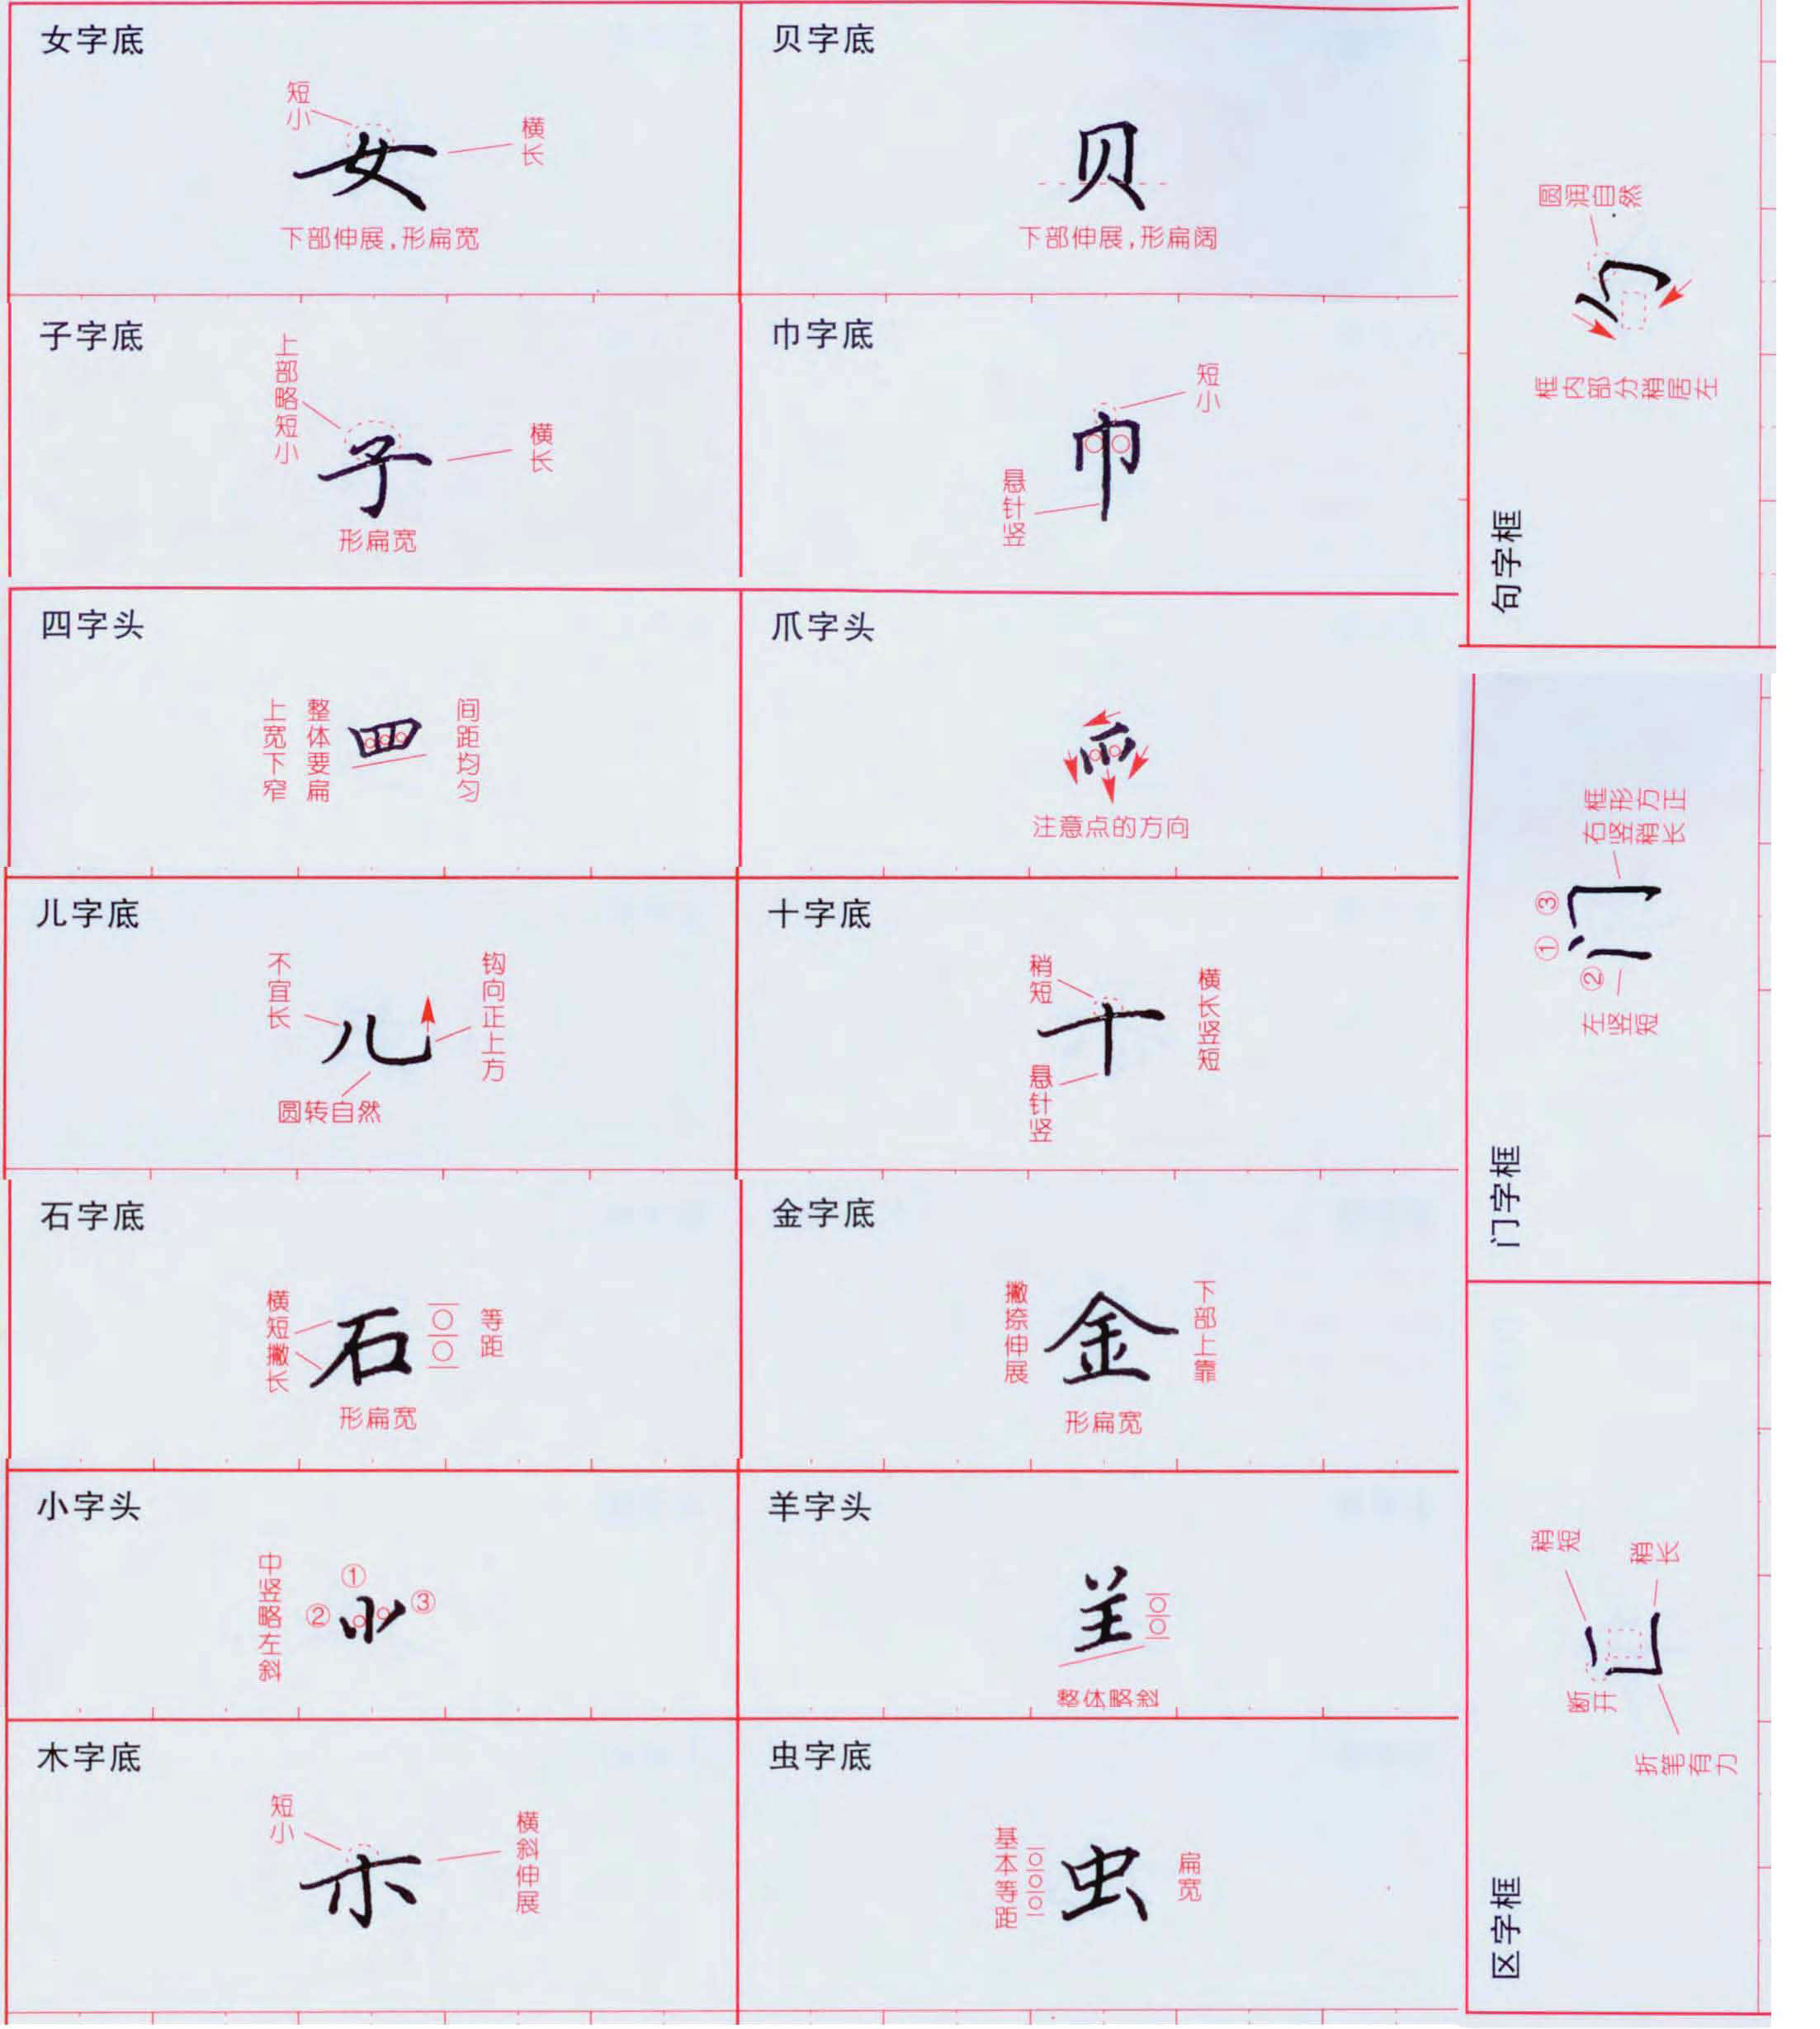 女字底
短小
女
横长
下部伸展,形扁宽
贝字底
贝
下部伸展,形扁阔
子字底
上部略短小
子
横长
形扁宽
巾字底
短小
巾
悬针竖
四字头
上宽下窄
整体要扁
罒
间距均匀
爪字头
爫
注意点的方向
儿字底
不宜长
儿
钩向正上方
圆转自然
十字底
稍短
十
横长竖短
悬针竖
石字底
横短撇长
石
等距
形扁宽
金字底
撇捺伸展
金
下部上靠
形扁宽
小字头
中竖略左斜
①
②
③
⺌
羊字头
𦍌
整体略斜
木字底
短小
朩
横斜伸展
虫字底
基本等距
虫
扁宽
句字框
圆润自然
勹
框内部分稍居左
门字框
框形方正
右竖稍长
①
②
③
门
左竖短
区字框
稍短
稍长
匚
断开
折笔有力